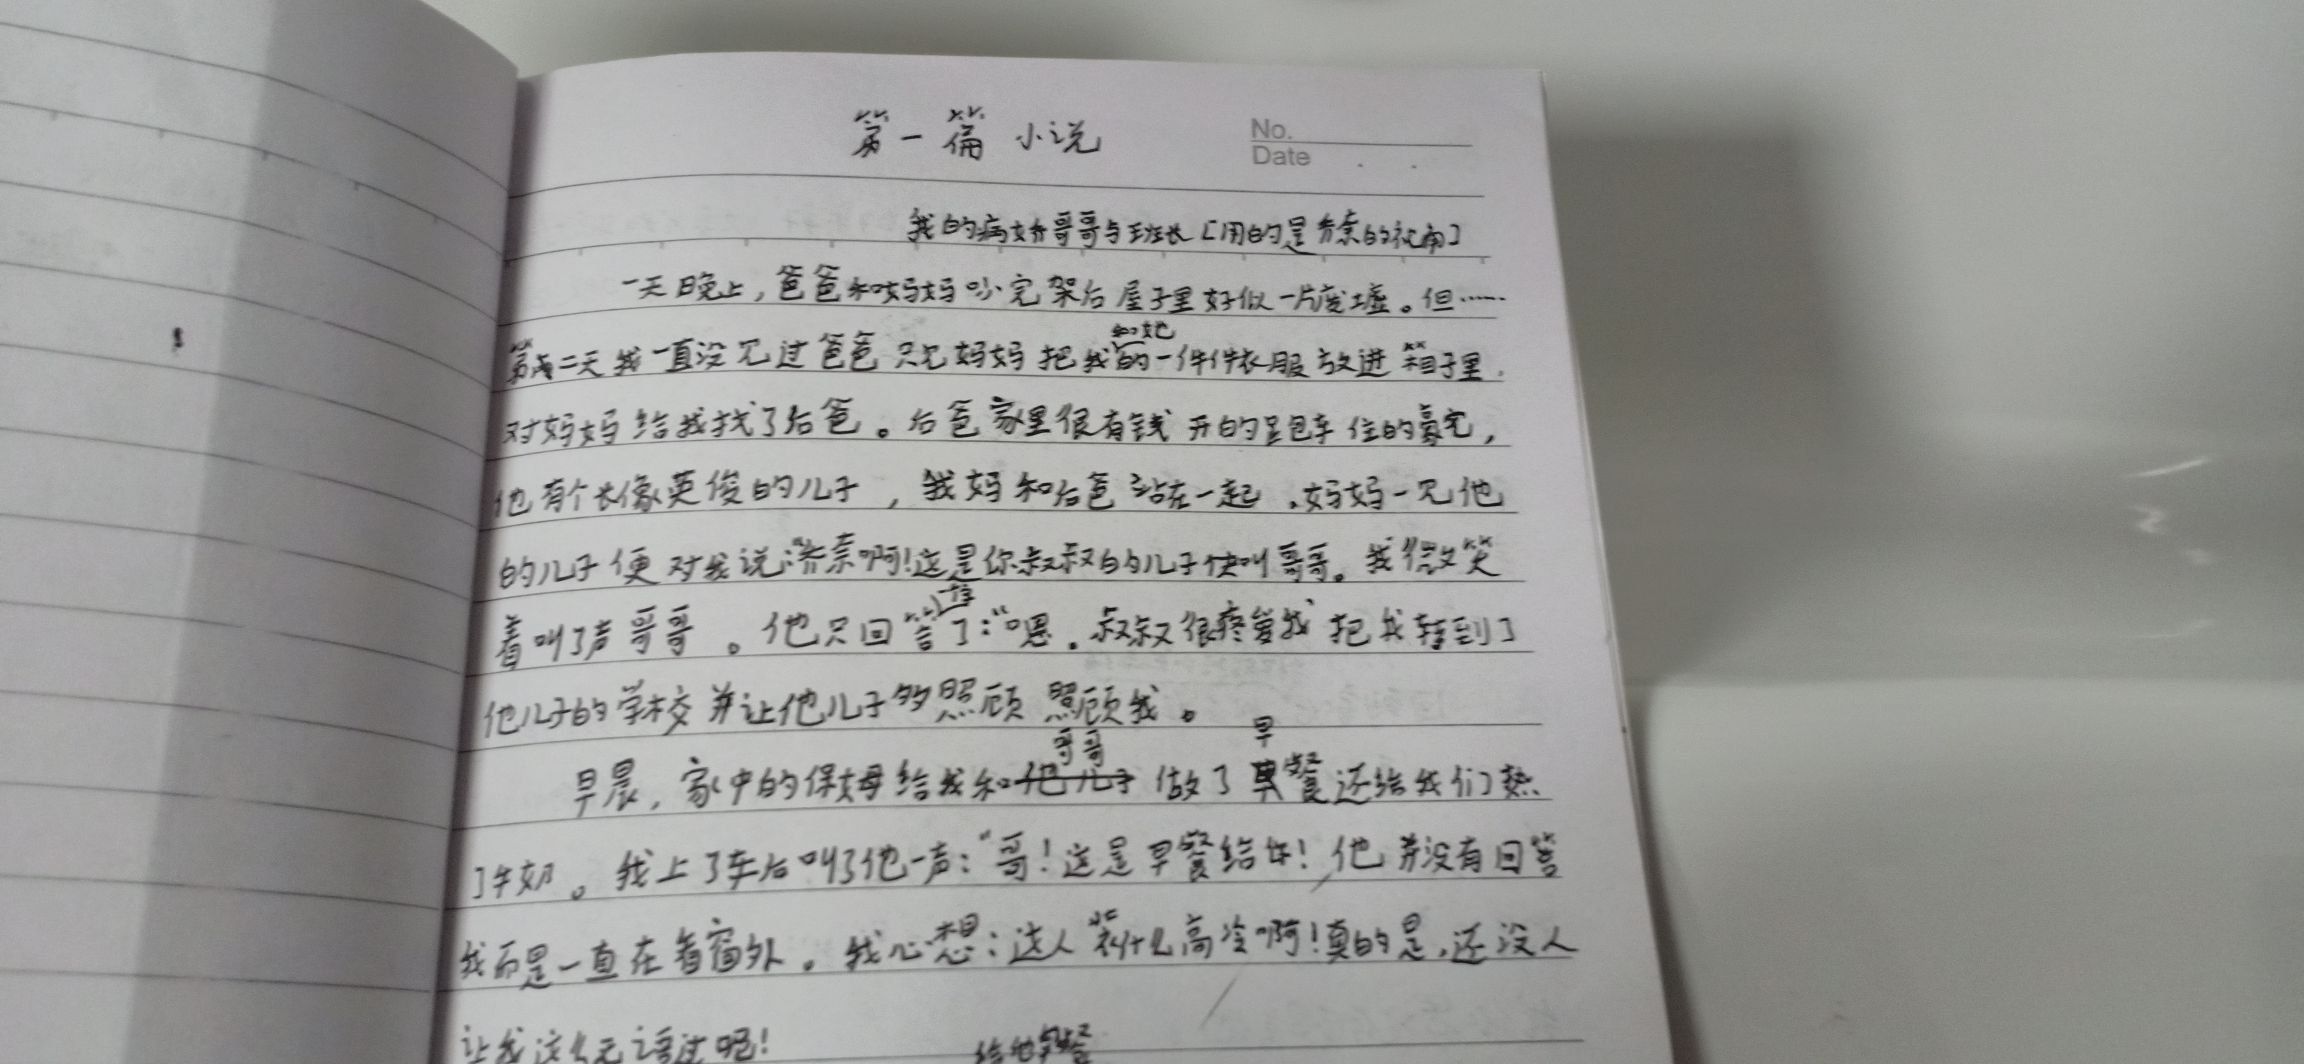 第一篇 小说
No.
Date
我的病娇哥哥与班长［用的是乔奈的视角］
一天晚上，爸爸和妈妈吵完架后屋子里好似一片废墟。但……
第二天我一直没见过爸爸只见妈妈把我和她的一件件衣服放进箱子里.
对妈妈给我找了后爸。后爸家里很有钱开的是包车住的豪宅，
他有个长像英俊的儿子，我妈和后爸站在一起.妈妈一见他
的儿子便对我说:“乔奈啊!这是你叔叔的儿子快叫哥哥。我微笑
着叫了声哥哥。他只回答了:“嗯.叔叔很疼爱我把我转到了
他儿子的学校并让他儿子多照顾照顾我。
早晨，家中的保姆给我和哥哥做了早餐还给我们热
了牛奶。我上了车后叫了他一声:“哥!这是早餐给你!他并没有回答
我而是一直在看窗外。我心想:这人装什么高冷啊!真的是.还没人
让我这么无语过呢!
给他早餐